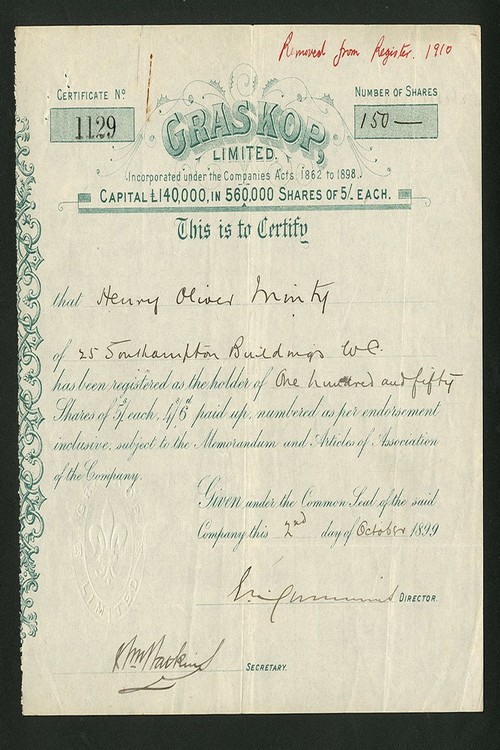 Removed from Register. 1910
CERTIFICATE No.
1129
NUMBER OF SHARES
150 —
GRASKOP,
LIMITED.
Incorporated under the Companies Acts, 1862 to 1898.
CAPITAL £140,000, IN 560,000 SHARES OF 5/- EACH.
This is to Certify
that Henry Oliver Minty
of 25 Southampton Buildings W.C.
has been registered as the holder of One hundred and fifty
Shares of 5/- each, 4/6d paid up, numbered as per endorsement
inclusive, subject to the Memorandum and Articles of Association
of the Company.
Given under the Common Seal of the said
Company this 2nd day of October 1899
DIRECTOR.
SECRETARY.
LIMITED